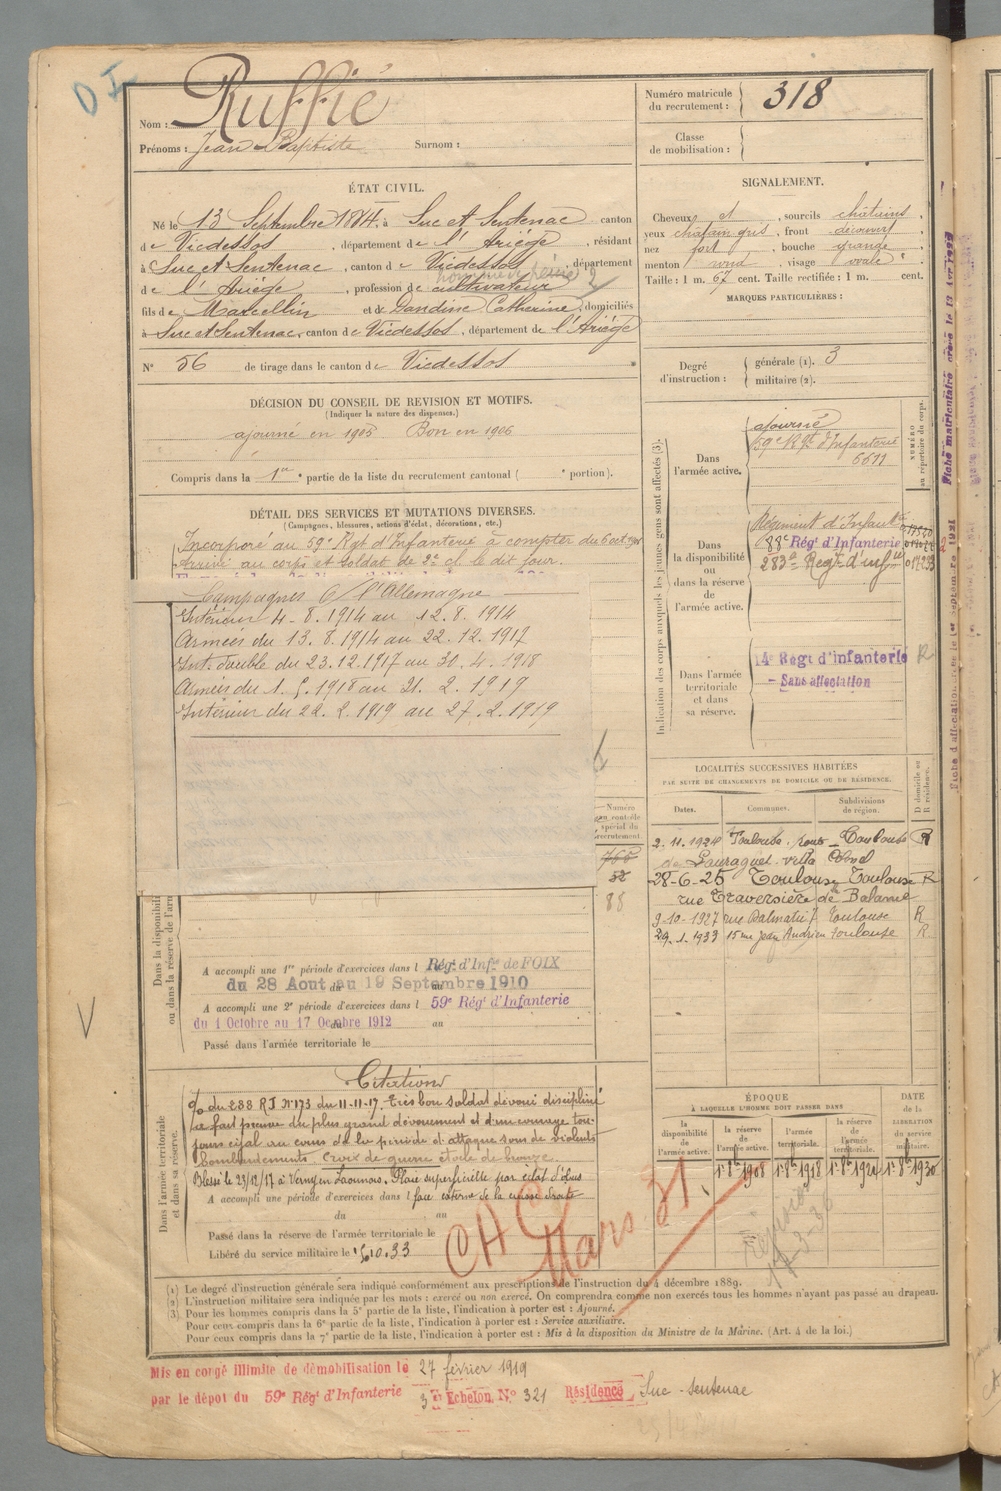 D I
Ruffié
Nom :
Prénoms : Jean Baptiste Surnom :
Numéro matricule du recrutement : 318
Classe de mobilisation :
ÉTAT CIVIL.
Né le 13 Septembre 1884, à Suc et Sentenac canton
de Vicdessos, département de l'Ariège, résidant
à Suc et Sentenac, canton de Vicdessos, département
de l'Ariège, profession de cultivateur 2
fils de Marcellin et de Dandine Catherine, domiciliés
à Suc et Sentenac, canton de Vicdessos, département de l'Ariège
N° 56 de tirage dans le canton de Vicdessos
SIGNALEMENT.
Cheveux et, sourcils châtains,
yeux châtain gris, front découvert,
nez fort, bouche grande,
menton rond, visage ovale.
Taille : 1 m. 67 cent. Taille rectifiée : 1 m. cent.
MARQUES PARTICULIÈRES :
Degré d'instruction : générale (1). 3
militaire (2).
DÉCISION DU CONSEIL DE REVISION ET MOTIFS.
(Indiquer la nature des dispenses.)
ajourné en 1905 Bon en 1906
Compris dans la 1re partie de la liste du recrutement cantonal ( e portion).
DÉTAIL DES SERVICES ET MUTATIONS DIVERSES.
(Campagnes, blessures, actions d'éclat, décorations, etc.)
Incorporé au 59e Rgt d'Infanterie à compter du 6 oct
Arrivé au corps et soldat de 2e cl. le dit jour.
Campagnes C/ l'Allemagne
Intérieur 4-8.1914 au 12.8.1914
Armées du 13.8.1914 au 22.12.1917
Int. double du 23.12.1917 au 30.4.1918
Armées du 1.5.1918 au 21.2.1919
Intérieur du 22.2.1919 au 27.2.1919
Indication des corps auxquels les jeunes gens sont affectés (3).
NUMÉRO au répertoire du corps.
Dans l'armée active.
ajourné
59e Rgt d'Infanterie
6611
Dans la disponibilité ou dans la réserve de l'armée active.
Régiment d'Infanterie
88e Régt d'Infanterie
283e Regt d'infie
Dans l'armée territoriale et dans sa réserve.
14e Régt d'infanterie R
- Sans affectation
LOCALITÉS SUCCESSIVES HABITÉES
PAR SUITE DE CHANGEMENTS DE DOMICILE OU DE RÉSIDENCE.
Dates. Communes. Subdivisions de région. D domicile ou R résidence.
2.11.1924 Toulouse. Toulouse R
de Lauraguet villa
28-6-25 Toulouse Toulouse R
rue Traversière de Balance
9-10-1927 rue Dalmatie 7 Toulouse R
29.1.1933 15 rue Toulouse R
Numéro au contrôle spécial du recrutement.
766
88
Dans la disponibilité ou dans la réserve de l'armée
A accompli une 1re période d'exercices dans l Régt d'Infie de FOIX
du 28 Aout au 19 Septembre 1910
A accompli une 2e période d'exercices dans l 59e Régt d'Infanterie
du 1 Octobre au 17 Octobre 1912
Passé dans l'armée territoriale le
Dans l'armée territoriale et dans sa réserve.
Citations
o/o du 288 RI N°173 du 11-11-17. Très bon soldat dévoué discipliné
a fait preuve du plus grand dévouement et d'un courage tou-
jours égal au cours de la période d'attaque sous de violents
bombardements. Croix de guerre étoile de bronze.
Blessé le 23/12/17 à Verny en Laonnois. Plaie superficielle par éclat d'obus
A accompli une période d'exercices dans l face externe de la cuisse droite
du au
Passé dans la réserve de l'armée territoriale le
Libéré du service militaire le 10.33
CAC
Mars 31
ÉPOQUE
À LAQUELLE L'HOMME DOIT PASSER DANS
DATE de la LIBÉRATION du service militaire.
la disponibilité de l'armée active. la réserve de l'armée active. l'armée territoriale. la réserve de l'armée territoriale.
1r 8b 1908 1r 8b 1918 1r 8b 1924 1r 8b 1930
(1) Le degré d'instruction générale sera indiqué conformément aux prescriptions de l'instruction du 4 décembre 1889.
(2) L'instruction militaire sera indiquée par les mots : exercé ou non exercé. On comprendra comme non exercés tous les hommes n'ayant pas passé au drapeau.
(3) Pour les hommes compris dans la 5e partie de la liste, l'indication à porter est : Ajourné.
Pour ceux compris dans la 6e partie de la liste, l'indication à porter est : Service auxiliaire.
Pour ceux compris dans la 7e partie de la liste, l'indication à porter est : Mis à la disposition du Ministre de la Marine. (Art. 4 de la loi.)
Mis en congé illimité de démobilisation le 27 février 1919
par le dépôt du 59e Régt d'Infanterie 3e Echelon N° 321 Résidence Suc-Sentenac